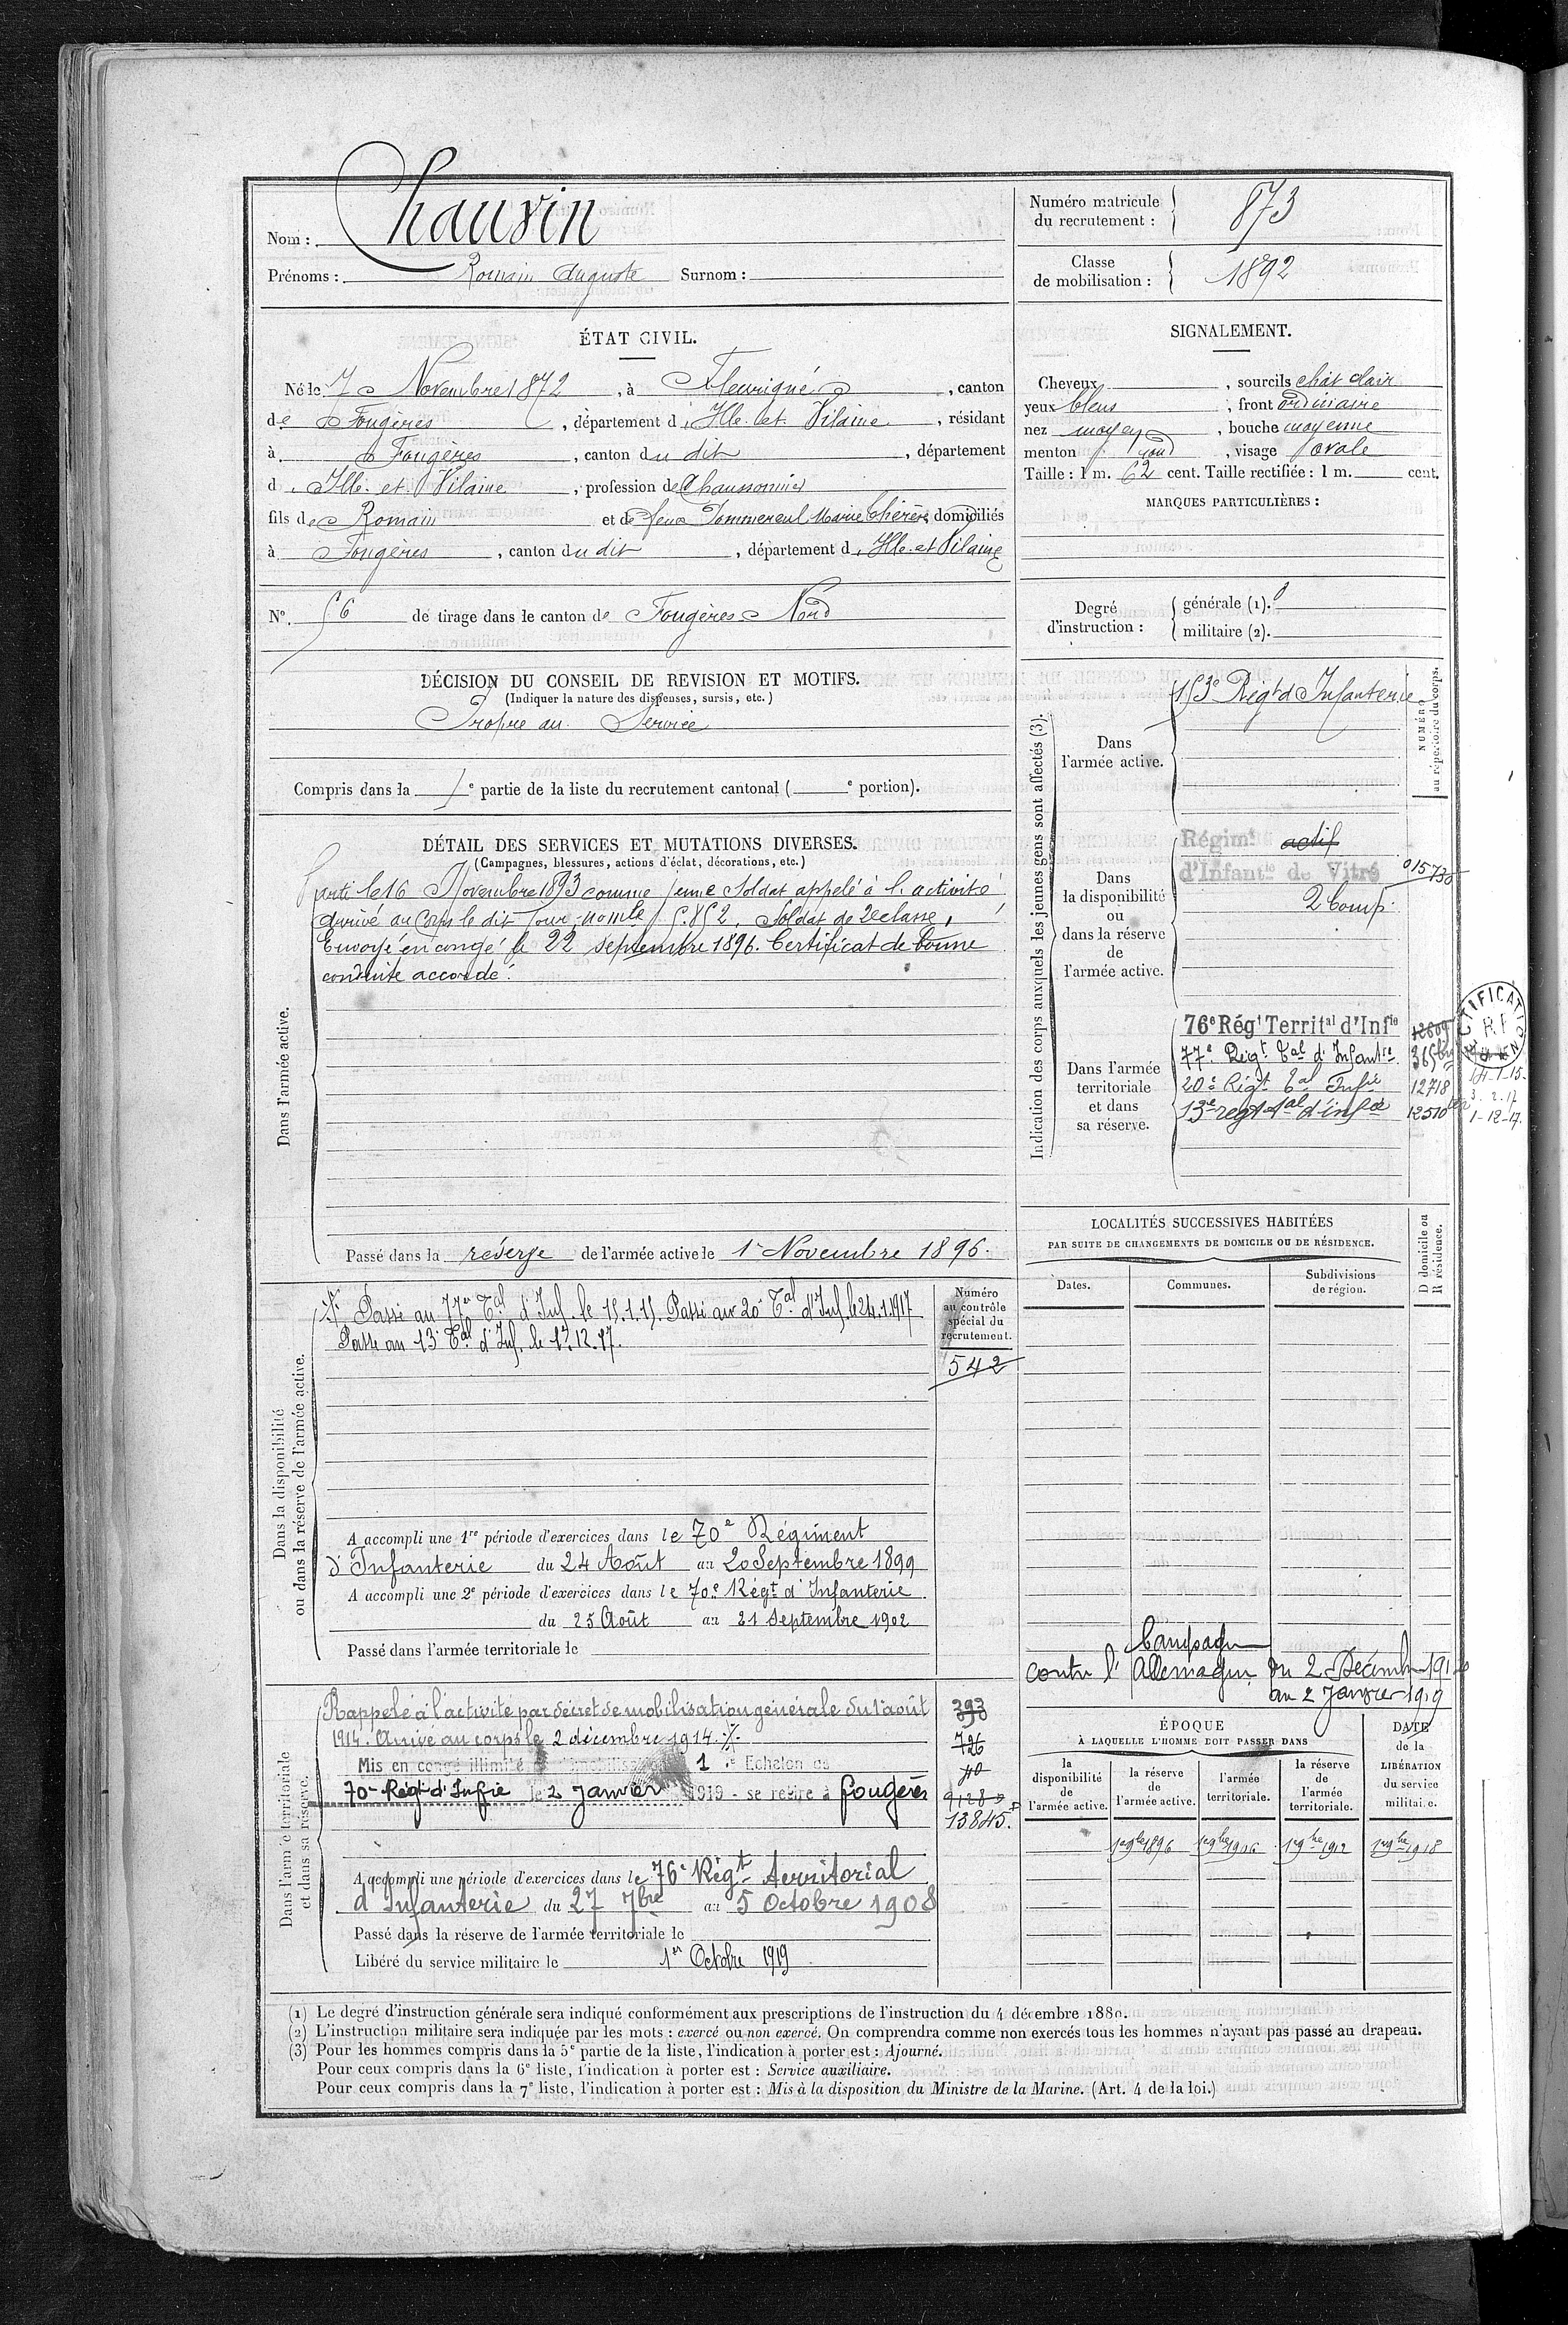 Nom : Chauvin
Prénoms : Romain Auguste Surnom :
Numéro matricule du recrutement : 873
Classe de mobilisation : 1892
ÉTAT CIVIL.
Né le 7 Novembre 1872, à Fleurigné, canton
de Fougères, département d'Ille et Vilaine, résidant
à Fougères, canton du dit, département
d'Ille et Vilaine, profession de Chaussonnier
fils de Romain et de feue Tommereul Marie Thérèse, domiciliés
à Fougères, canton du dit, département d'Ille et Vilaine
N° 56 de tirage dans le canton de Fougères Nord
SIGNALEMENT.
Cheveux , sourcils chât clair
yeux bleus, front ordinaire
nez moyen, bouche moyenne
menton rond, visage ovale
Taille : 1 m. 62 cent. Taille rectifiée : 1 m. cent.
MARQUES PARTICULIÈRES :
Degré d'instruction :
générale (1).
militaire (2).
DÉCISION DU CONSEIL DE REVISION ET MOTIFS.
(Indiquer la nature des dispenses, sursis, etc.)
Propre au Service
Compris dans la 1e partie de la liste du recrutement cantonal ( e portion).
DÉTAIL DES SERVICES ET MUTATIONS DIVERSES.
(Campagnes, blessures, actions d'éclat, décorations, etc.)
Dans l'armée active.
Parti le 16 Novembre 1893 comme jeune Soldat appelé à l'activité
Arrivé au Corps le dit jour, nomle 5.852. Soldat de 2e classe,
Envoyé en congé le 22 septembre 1896. Certificat de bonne
conduite accordé.
Passé dans la réserve de l'armée active le 1er Novembre 1896.
Indication des corps auxquels les jeunes gens sont affectés (3).
NUMÉRO au répertoire du corps.
Dans l'armée active.
153e Régt d'Infanterie
Dans la disponibilité ou dans la réserve de l'armée active.
Régimt actif
d'Infantie de Vitré
015730
2 Comp.
Dans l'armée territoriale et dans sa réserve.
76e Régt Territal d'Infie
77e Régt Tal d'Infantie
20e Régt Tal Infie 12718
13e regt tal d'infie 12510 ter
14-1-15
3.2.17
1-12-17.
RF
LOCALITÉS SUCCESSIVES HABITÉES
PAR SUITE DE CHANGEMENTS DE DOMICILE OU DE RÉSIDENCE.
Dates. Communes. Subdivisions de région. D domicile ou R résidence.
Dans la disponibilité ou dans la réserve de l'armée active.
Numéro au contrôle spécial du recrutement.
Passé au 77e Tal d'Inf. le 15.1.15. Passé au 20e Tal d'Inf. le 24.1.1917
Passé au 13e Tal d'Inf. le 1.12.17.
542
A accompli une 1re période d'exercices dans le 70e Régiment
d'Infanterie du 24 Août au 20 Septembre 1899
A accompli une 2e période d'exercices dans le 70e Régt d'Infanterie
du 25 Août au 21 Septembre 1902
Passé dans l'armée territoriale le
Campagne
contre l'Allemagne du 2 Décembre 1914
au 2 Janvier 1919
Dans l'armée territoriale et dans sa réserve.
Rappelé à l'activité par décret de mobilisation générale du 1er août
1914. Arrivé au corps le 2 décembre 1914.
Mis en congé illimité 1 Echelon
70e Régt d'Infie le 2 Janvier 1919 - se retire à Fougères
393
726
9128
13845.
A accompli une période d'exercices dans le 76e Régt territorial
d'Infanterie du 27 7bre au 5 Octobre 1908
Passé dans la réserve de l'armée territoriale le
Libéré du service militaire le 1er Octobre 1919
ÉPOQUE
À LAQUELLE L'HOMME DOIT PASSER DANS
la disponibilité de l'armée active.
la réserve de l'armée active.
l'armée territoriale.
la réserve de l'armée territoriale.
DATE de la LIBÉRATION du service militaire.
1er 9bre 1896 1er 9bre 1906 1er 9bre 1912 1er 9bre 1918
(1) Le degré d'instruction générale sera indiqué conformément aux prescriptions de l'instruction du 4 décembre 1880.
(2) L'instruction militaire sera indiquée par les mots : exercé ou non exercé. On comprendra comme non exercés tous les hommes n'ayant pas passé au drapeau.
(3) Pour les hommes compris dans la 5e partie de la liste, l'indication à porter est : Ajourné.
Pour ceux compris dans la 6e liste, l'indication à porter est : Service auxiliaire.
Pour ceux compris dans la 7e liste, l'indication à porter est : Mis à la disposition du Ministre de la Marine. (Art. 4 de la loi.)